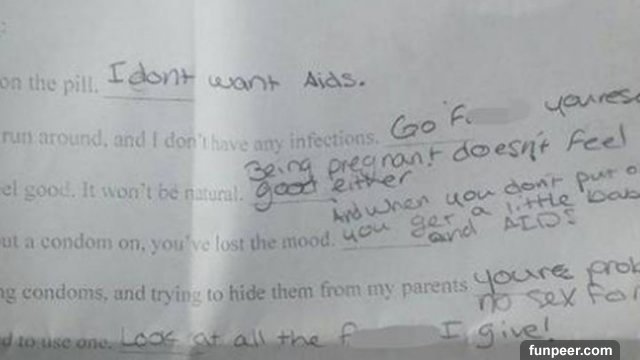 :
on the pill. I dont want Aids.
run around, and I don't have any infections. Go F youres
Being pregnant doesn't feel
el good. It won't be natural. good either
And when you don't put o
ut a condom on, you've lost the mood. you get a little bas
and AIDS
ng condoms, and trying to hide them from my parents youre prob
no sex for
d to use one. Look at all the f I give!
funpeer.com